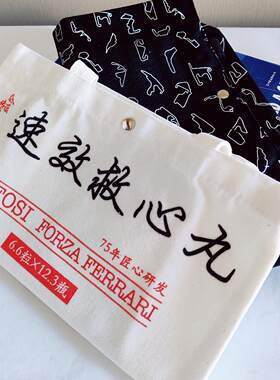 速效救心丸
75年匠心研发
TOSI FORZA FERRARI
6.6粒×12.3瓶